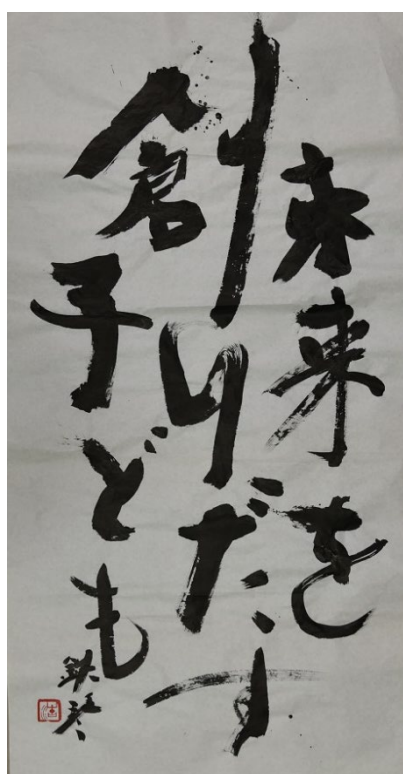 未来を
創りだす
子ども
鉄琴